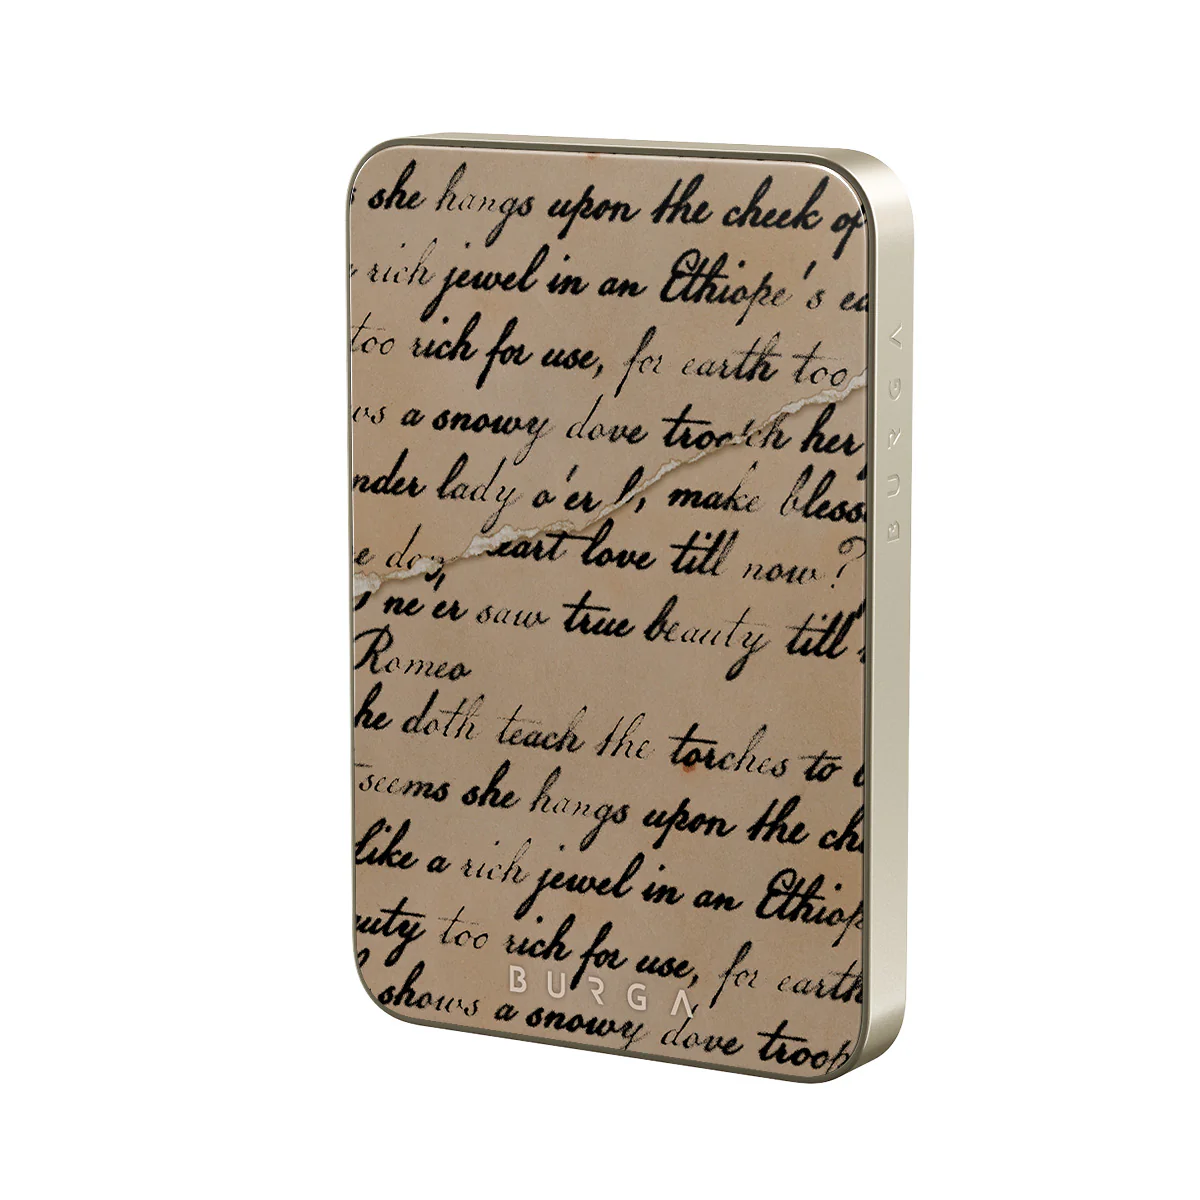 she hangs upon the cheek of
rich jewel in an Ethiope's ea
too rich for use, for earth too
ws a snowy dove troo ch her
nder lady o'er , make bless
e day, eart love till now?
ne'er saw true beauty till
Romeo
he doth teach the torches to
seems she hangs upon the ch
like a rich jewel in an Ethiop
uty too rich for use, for earth
BURGA
shows a snowy dove troop
BURGA